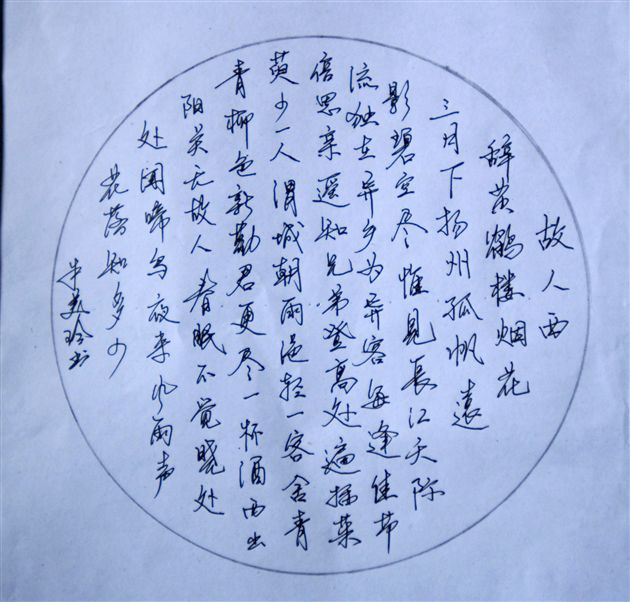 故人西
辞黄鹤楼烟花
三月下扬州孤帆遠
影碧空尽惟見長江天际
流独在异乡为异客每逢佳节
倍思亲遥知兄弟登高处遍插茱
萸少一人渭城朝雨浥轻一客舍青
青柳色新勸君更尽一杯酒西出
阳关无故人春眠不觉晓处
处闻啼鸟夜来风雨声
花落知多少
美玲书